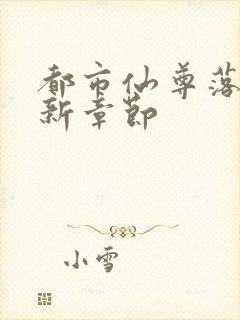 都市仙尊落
新章节
小雪